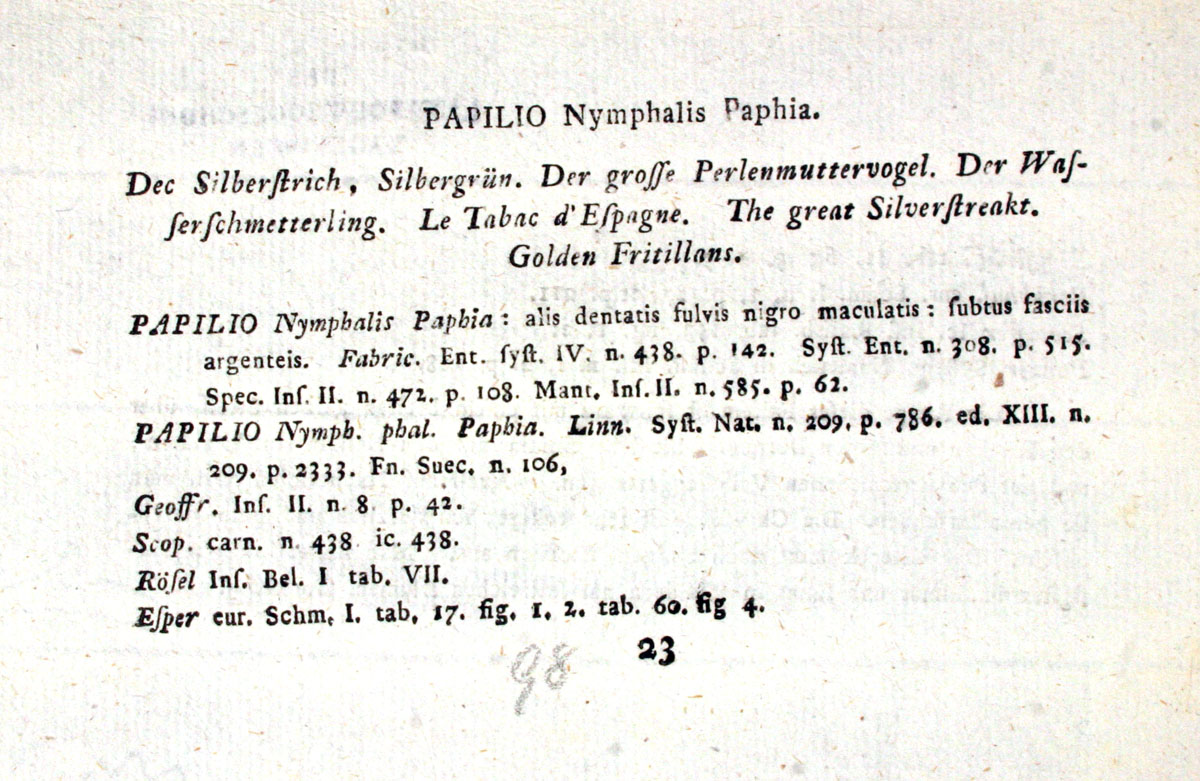 PAPILIO Nymphalis Paphia.
Dec Silberſtrich, Silbergrün. Der groſſe Perlenmuttervogel. Der Waſ-
ſerſchmetterling. Le Tabac d'Eſpagne. The great Silverſtreakt.
Golden Fritillans.
PAPILIO Nymphalis Paphia: alis dentatis fulvis nigro maculatis: ſubtus fasciis
argenteis. Fabric. Ent. ſyſt. IV. n. 438. p. 142. Syſt. Ent. n. 308. p. 515.
Spec. Inſ. II. n. 472. p. 108. Mant. Inſ. II. n. 585. p. 62.
PAPILIO Nymph. phal. Paphia. Linn. Syſt. Nat. n. 209. p. 786. ed. XIII. n.
209. p. 2333. Fn. Suec. n. 106,
Geoffr. Inſ. II. n. 8 p. 42.
Scop. carn. n. 438 ic. 438.
Röſel Inſ. Bel. I tab. VII.
Eſper eur. Schm. I. tab. 17. fig. 1. 2. tab. 60. fig 4.
23
98